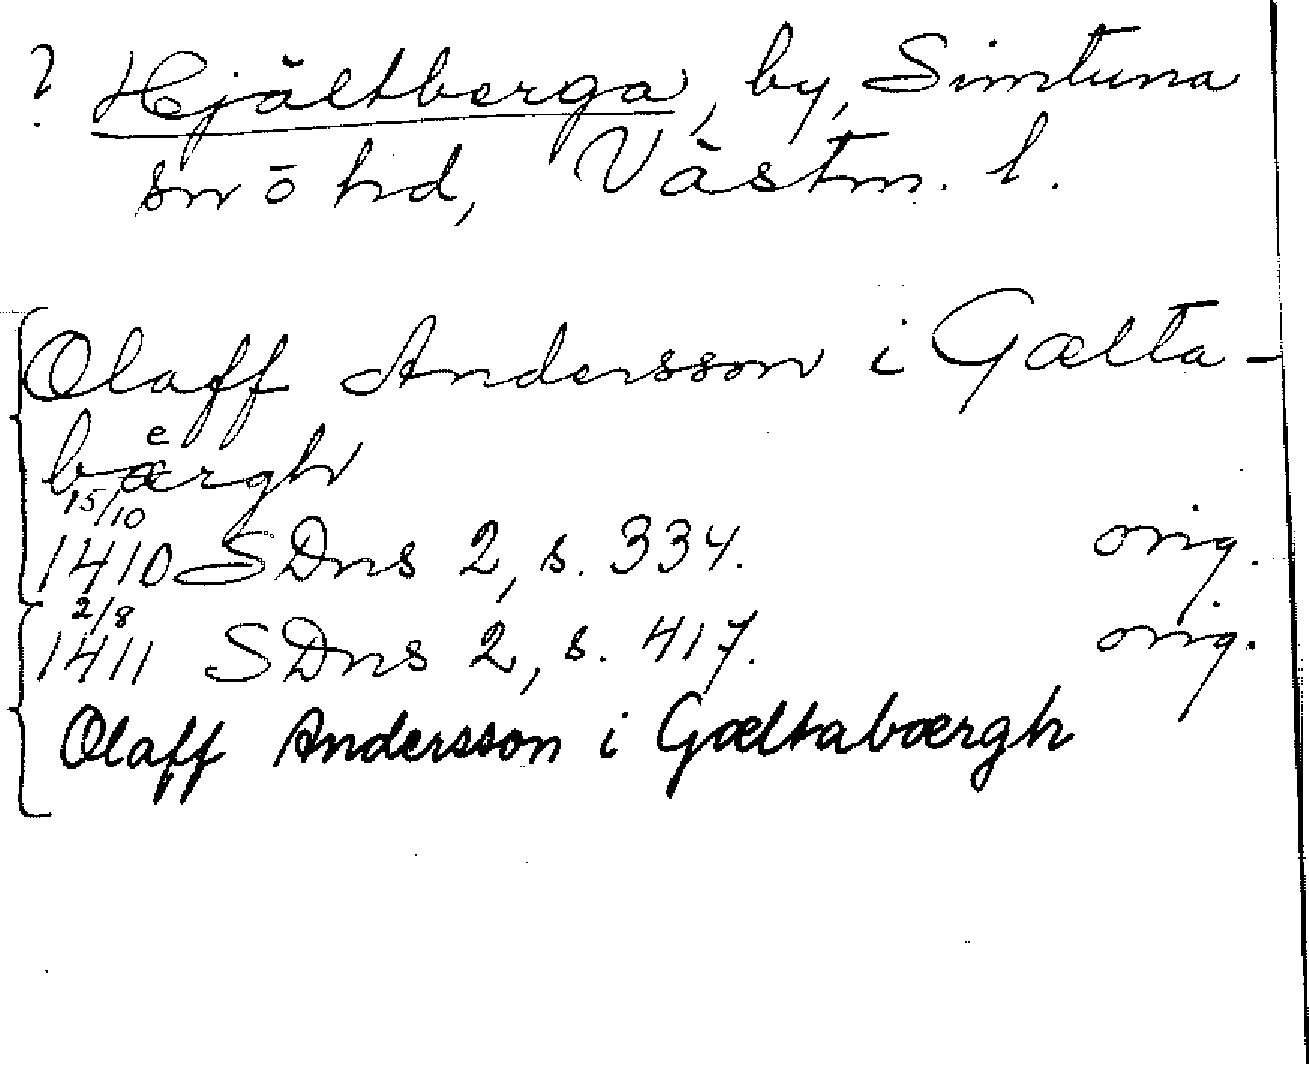 ? Hjältberga, by, Simtuna
sn ō hd, Västm. l.
Olaff Andersson i Gælta-
bærgh
e
15/10
1410 SDns 2, s. 334. orig.
2/8
1411 SDns 2, s. 417. orig.
Olaff Andersson i Gæltabærgh